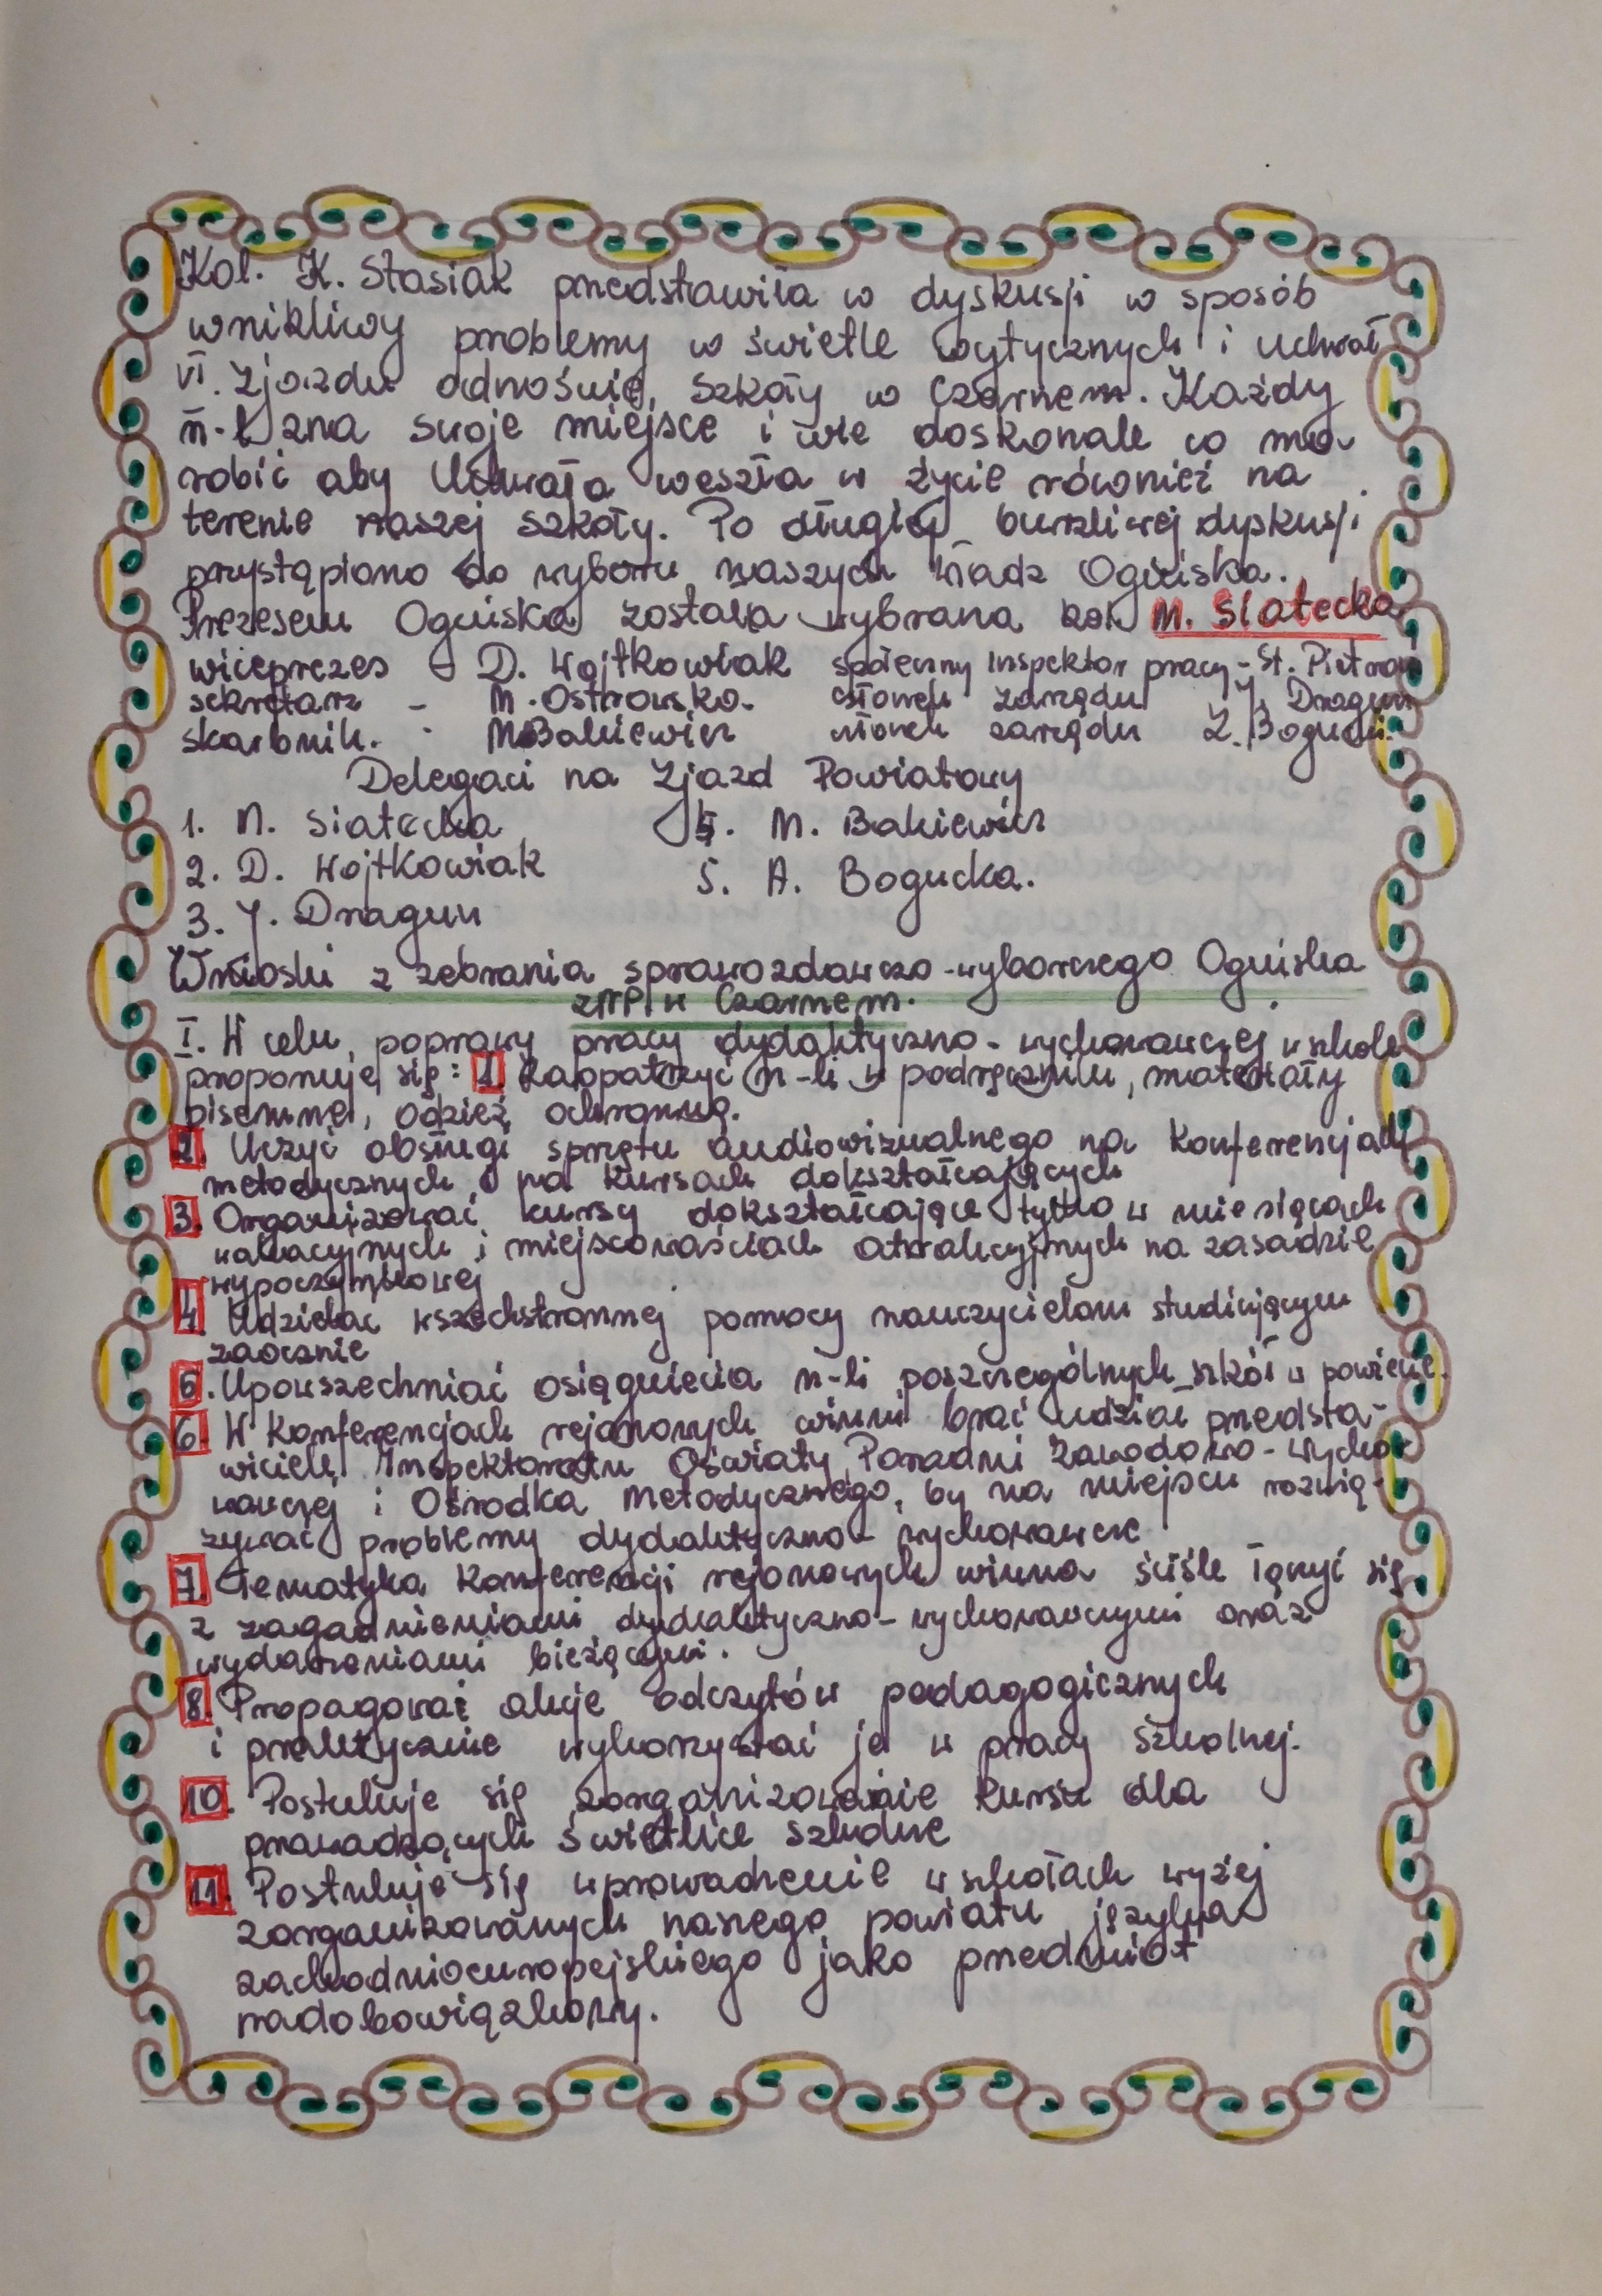 Kol. K. Stasiak przedstawiła w dyskusji w sposób
wnikliwy problemy w świetle wytycznych i uchwał
VI. Zjazdu odnośnie, Szkoły w Czarnem. Każdy
n-l zna swoje miejsce i wie doskonale co ma
robić aby Uchwała weszła w życie również na
terenie naszej szkoły. Po długiej burzliwej dyskusji
przystąpiono do wyboru naszych władz Ogniska.
Prezesem Ogniska została wybrana kol. M. Siatecka
wiceprezes - D. Wojtkowiak społeczny inspektor pracy - St. Pietroń
sekretarz - M. Ostrowska. członek zarządu J. Dragun
skarbnik. - M. Bakiewicz członek zarządu Z. Bogucki.
Delegaci na Zjazd Powiatowy
1. M. Siatecka 4. M. Bakiewicz
2. D. Wojtkowiak 5. A. Bogucka.
3. J. Dragun
Wnioski z zebrania sprawozdawczo-wyborczego Ogniska
ZNP w Czarnem.
I. W celu poprawy pracy dydaktyczno-wychowawczej w szkole
proponuje się: 1. Zaopatrzyć n-li w podręczniki, materiały
pisemne, odzież ochronną.
2. Uczyć obsługi sprzętu audiowizualnego na Konferencjach
metodycznych i na kursach dokształcających
3. Organizować kursy dokształcające tylko w miesiącach
wakacyjnych i miejscowościach atrakcyjnych na zasadzie
wypoczynkowej
4. Udzielać wszechstronnej pomocy nauczycielom studiującym
zaocznie
6. Upowszechniać osiągnięcia n-li poszczególnych szkół w powiecie.
6. W Konferencjach rejonowych winni brać udział przedsta-
wiciele Inspektoratu Oświaty, Poradni Zawodowo-Wycho
wawczej i Ośrodka Metodycznego, by na miejscu rozwią-
zywać problemy dydaktyczno-wychowawcze
7. Tematyka Konferencji rejonowych winna ściśle łączyć się
z zagadnieniami dydaktyczno-wychowawczymi oraz
wydarzeniami bieżącymi.
8. Propagować akcje odczytów pedagogicznych
i praktycznie wykorzystać je w pracy szkolnej.
10. Postuluje się zorganizowanie kursu dla
prowadzących świetlice szkolne
11. Postuluje się wprowadzenie w szkołach wyżej
zorganizowanych naszego powiatu języka
zachodnioeuropejskiego jako przedmiot
nadobowiązkowy.